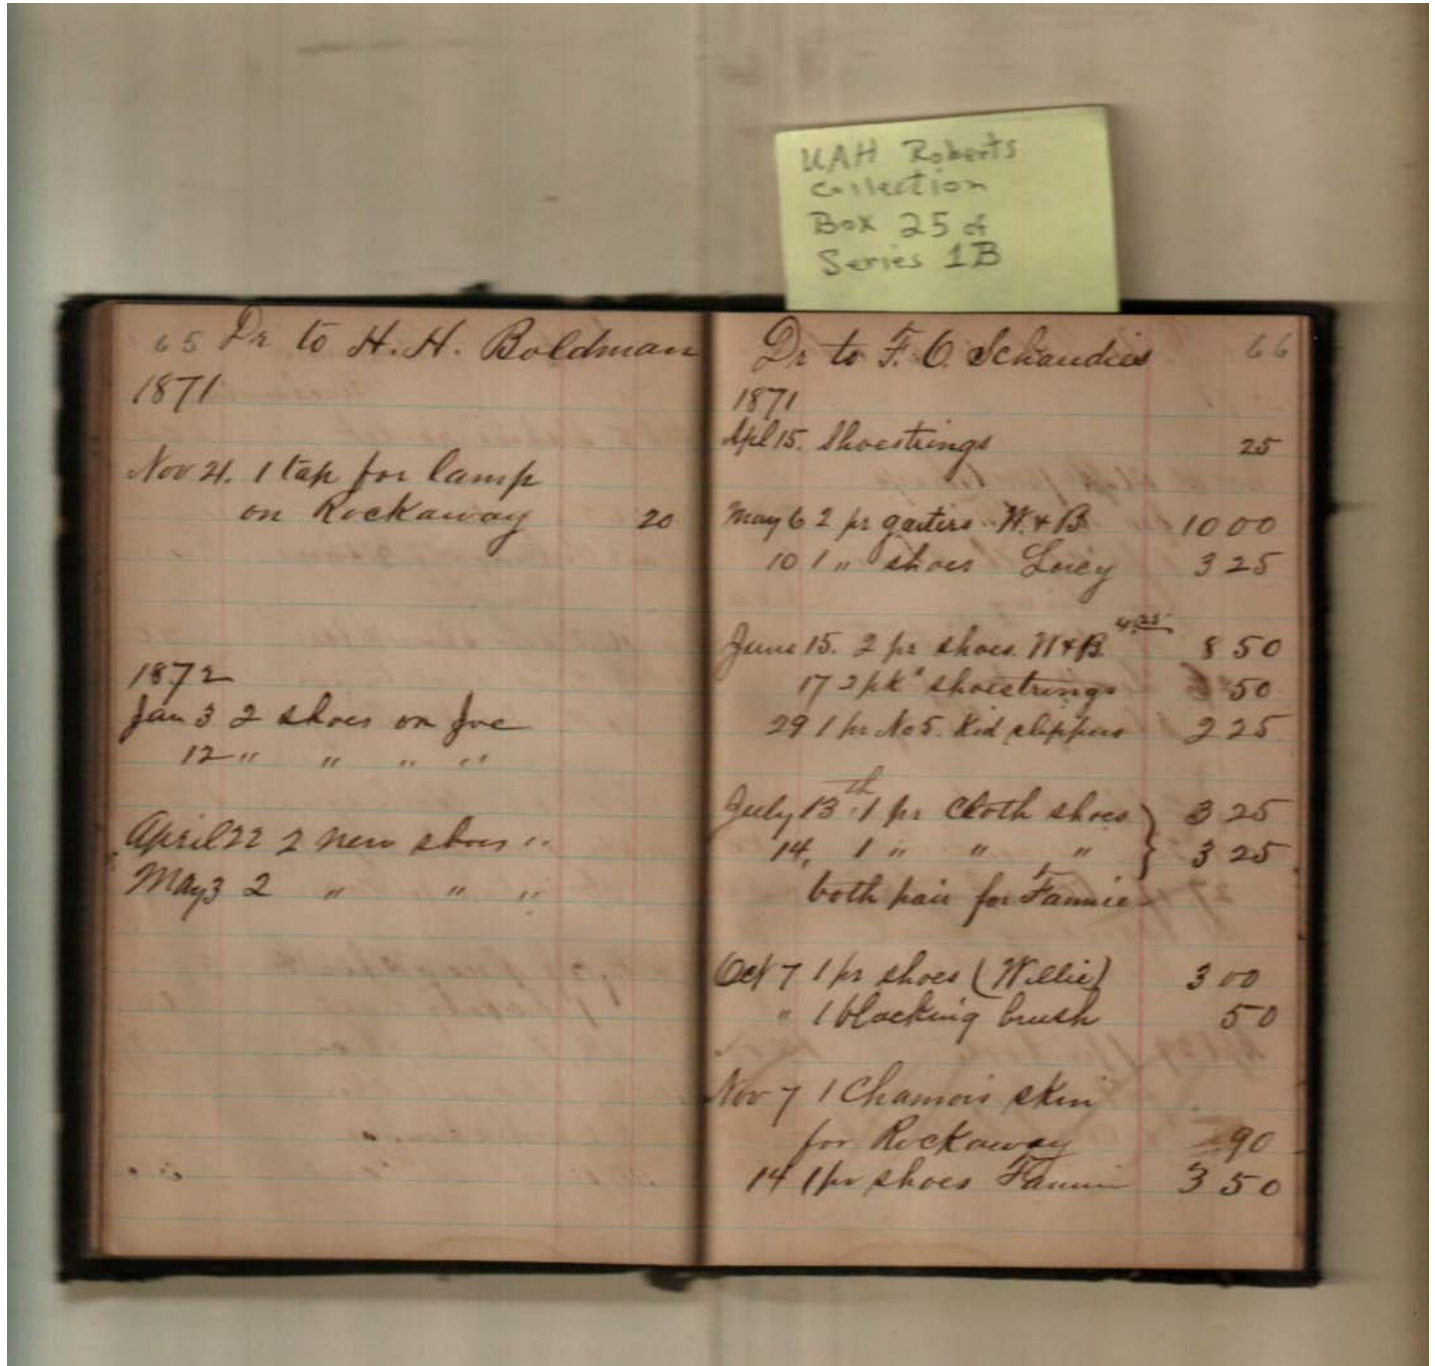 UAH Roberts
Collection
Box 25 of
Series 1B
65 Dr to H. H. Boldman
1871
Nov 21. 1 tap for lamp
on Rockaway 20
1872
Jan 3 2 shoes on Joe
12 " " " "
April 22 2 new shoes "
May 3 2 " " "
Dr to F. O. Schaudies 66
1871
Apl 15. Shoestrings 25
May 6 2 pr gaiters W. & B. 10 00
10 1 " shoes Lucy 3 25
June 15. 2 pr shoes. W & B. 4.25 8 50
17 2 pks shoestrings 50
29 1 pr No 5. Kid slippers 2 25
July 13th 1 pr Cloth shoes } 3 25
14, 1 " " " } 3 25
both pair for Fannie
Oct 7 1 pr shoes (Willie) 3 00
" 1 blacking brush 50
Nov 7 1 Chamois skin
for Rockaway 90
14 1 pr shoes Fannie 3 50